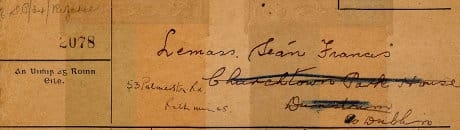 2078
Lemass, Seán Francis
An Uimhir ag Roinn
Eile.
53 Palmerston Rd.
Rathmines.
Churchtown Park House
Dundrum
Co Dublin